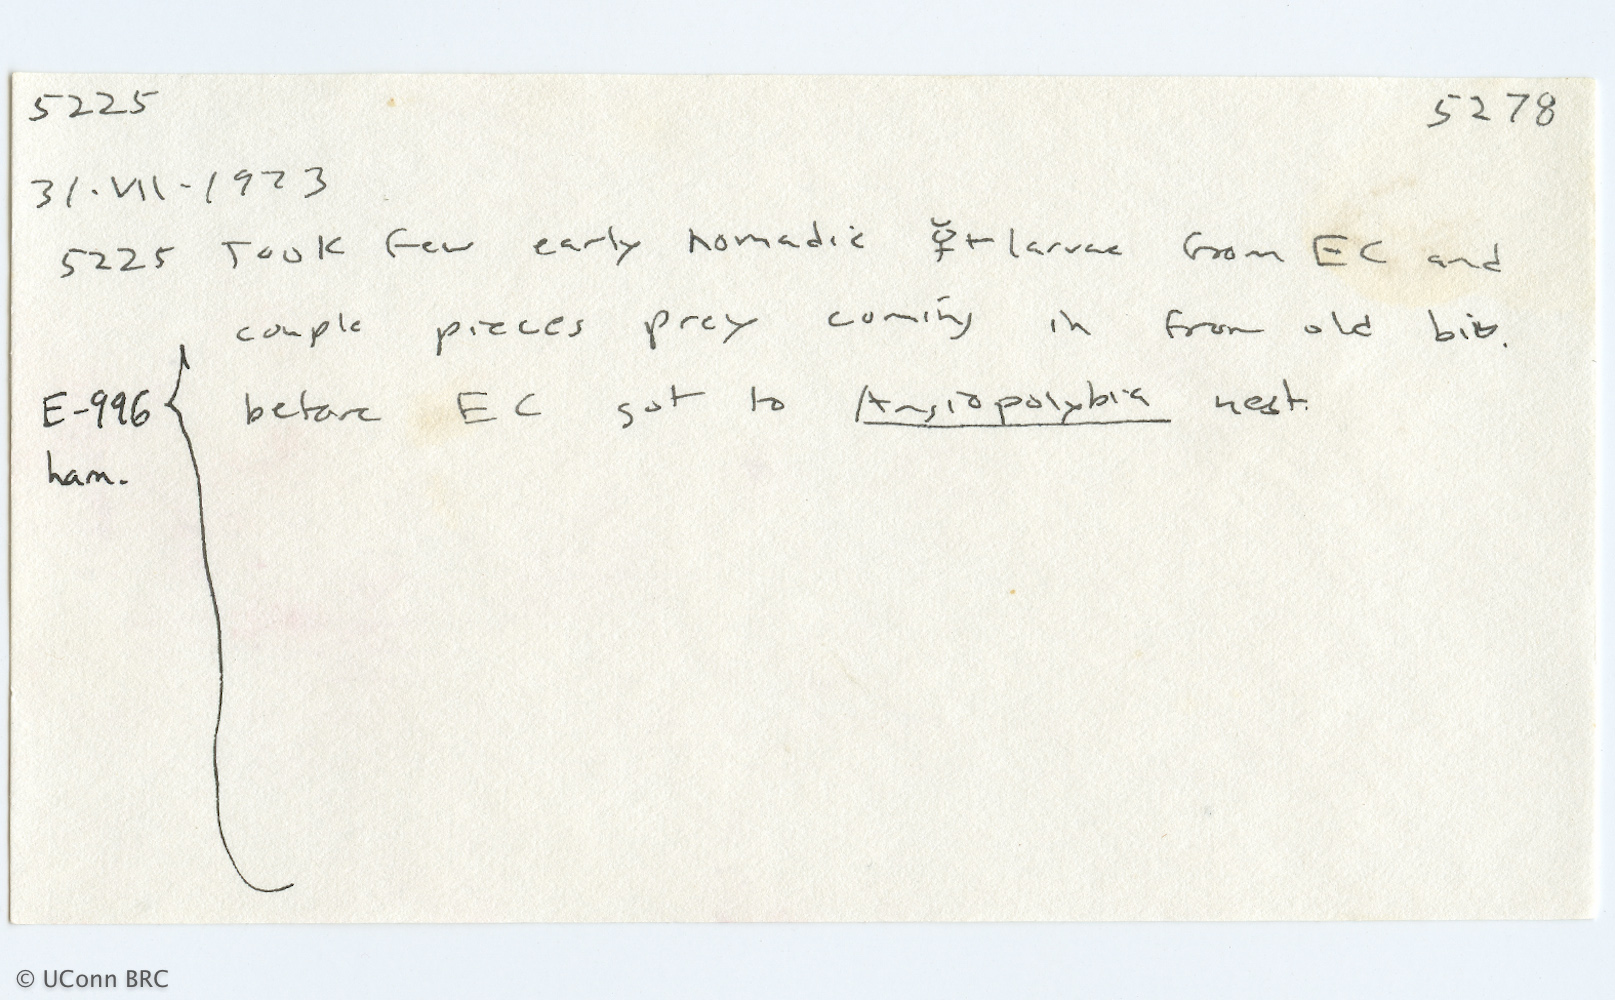 5225 5278
31·VII-1973
5225 Took few early nomadic ☿ + larvae from EC and
couple pieces prey coming in from old biv.
E-996 before EC got to Angiopolybia nest.
ham.
© UConn BRC